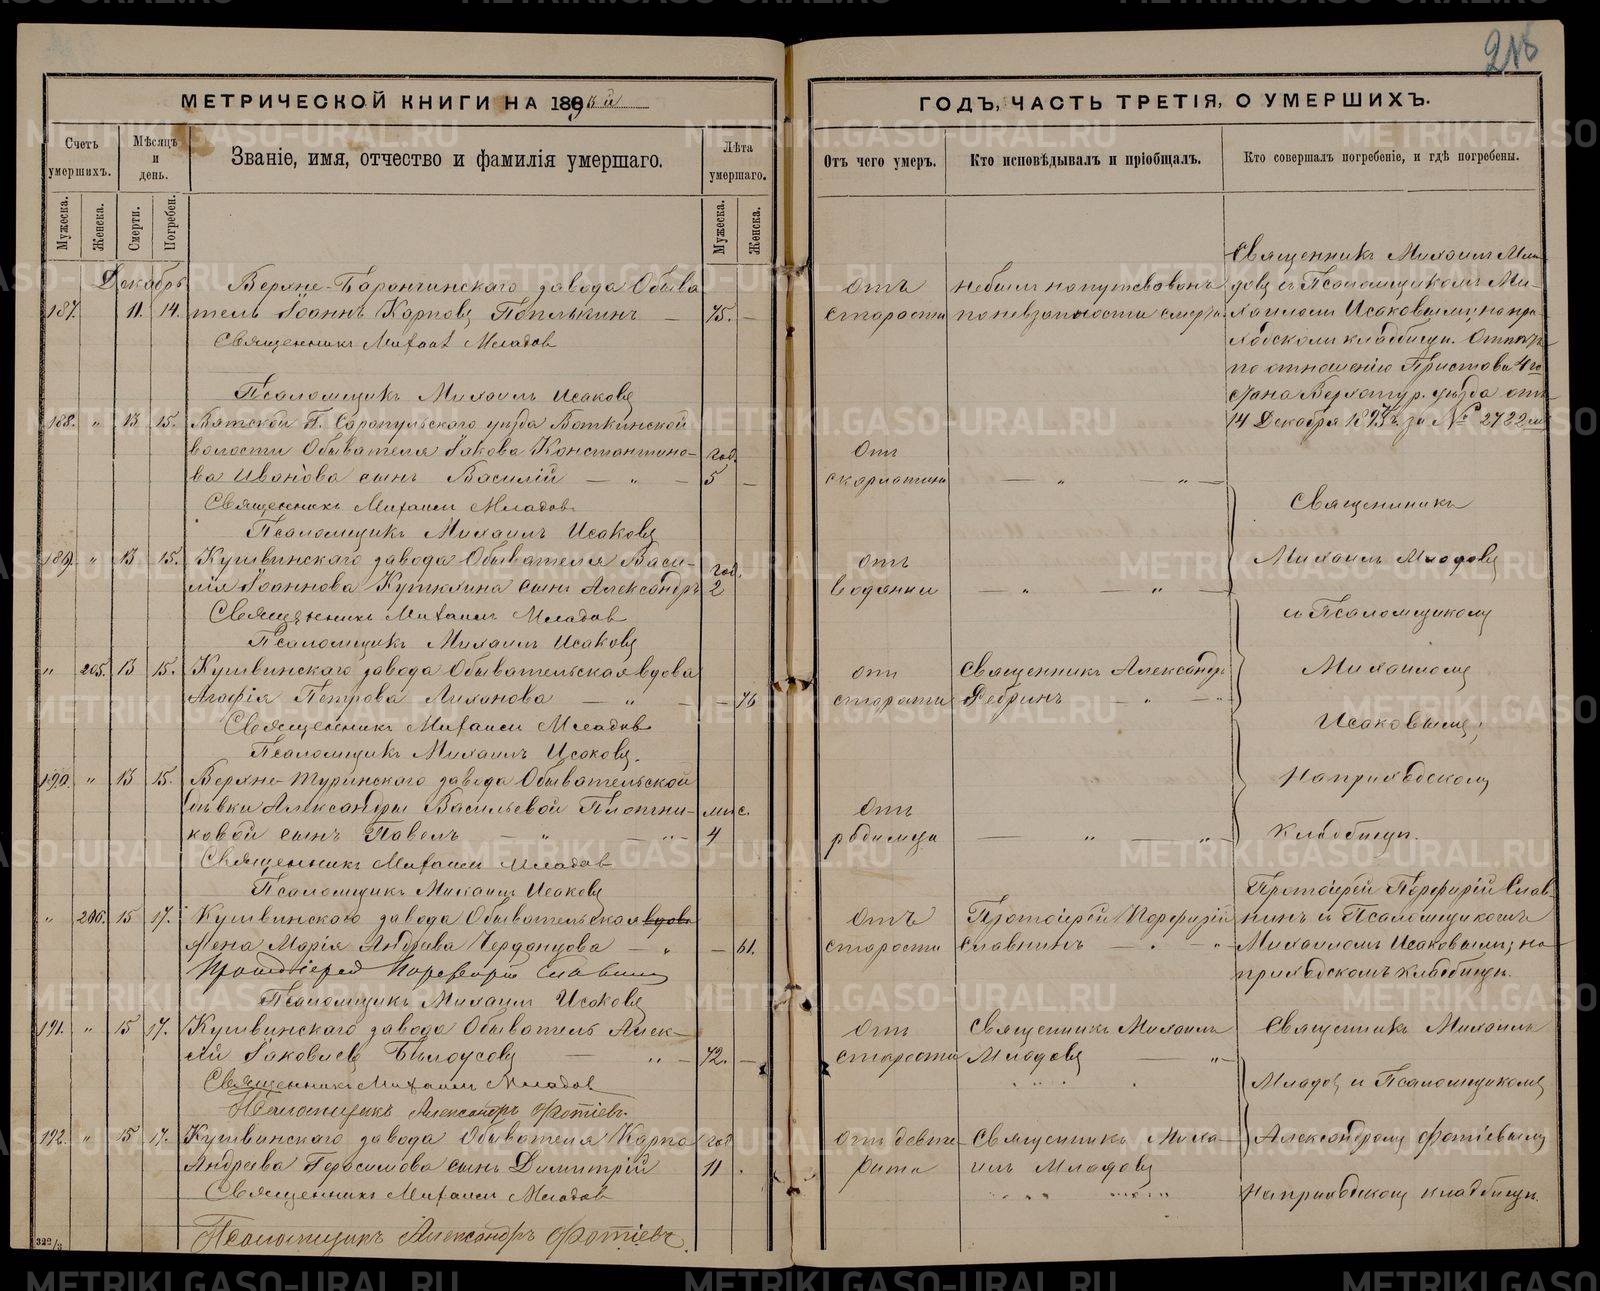 218
МЕТРИЧЕСКОЙ КНИГИ НА 1893й
ГОДЪ, ЧАСТЬ ТРЕТІЯ, О УМЕРШИХЪ.
Счетъ умершихъ.
Мѣсяцъ и день.
Званіе, имя, отчество и фамилія умершаго.
Лѣта умершаго.
Отъ чего умеръ.
Кто исповѣдывалъ и пріобщалъ.
Кто совершалъ погребеніе, и гдѣ погребены.
Мужеска. Женска. Смерти. Погребен. Мужеска. Женска.
Декабрь
187. 11. 14.
Верхне-Баранчинскаго завода Обыва
тель Іоаннъ Карповъ — 75. —
Священникъ Михаил Младов
Псаломщикъ Михаилъ Исаковъ
Отъ старости
небылъ напутствованъ
по невзапности смерти.
Священникъ Михаилъ Мла-
довъ съ Псаломщикомъ Ми-
хаиломъ Исаковымъ; на при-
ходскомъ кладбищѣ.
по отношенію Пристава 4го
Стана Верхотур. уѣзда отъ
14 Декабря 1893 г. за № 2722м
188. " 13 15.
Вятской Г. Сарапульскаго уѣзда Воткинской
волости Обывателя Іакова Константино-
ва Иванова сынъ Василій — " — год. 5 —
Священникъ Михаил Младов
Псаломщикъ Михаилъ Исаковъ
От скарлатины
— " — " —
189. " 13 15.
Кушвинскаго завода Обывателя Васи-
лія Іоаннова сынъ Александръ год. 2
Священникъ Михаил Младов
Псаломщикъ Михаилъ Исаковъ
отъ водянки
— " — " —
" 205. 13 15.
Кушвинскаго завода Обывательская вдова
Агафія Петрова Лиханова — " — — 76
Священникъ Михаил Младов
Псаломщикъ Михаилъ Исаковъ.
отъ старости
Священникъ Александръ
Ребринъ — " — "
190. " 13 15.
Верхне-Туринскаго завода Обывательской
дѣвки Александры Васильевой Плотни-
ковой сынъ Павелъ — " — " — мѣс. 4
Священникъ Михаил Младов
Псаломщикъ Михаилъ Исаковъ
Отъ родимца
— " — " —
Священникъ
Михаилъ Младовъ
съ Псаломщикомъ
Михаиломъ
Исаковымъ;
На приходскомъ
кладбищѣ.
" 206. 15 17.
Кушвинскаго завода Обывательская вдова
жена Марія Андреева Черданцова — " — 61.
Протоіерей Порфирій Славнин
Псаломщикъ Михаилъ Исаковъ
Отъ старости
Протоіерей Порфирій
Славнинъ — " — "
Протоіерей Порфирій Слав-
нинъ и Псаломщикомъ
Михаиломъ Исаковымъ; на
приходскомъ кладбищѣ.
191. " 15 17.
Кушвинскаго завода Обыватель Алек-
сѣй Іаковлевъ Бѣлоусовъ — " — 72. —
Священникъ Михаил Младов
Псаломщикъ Александръ Фотіевъ.
Отъ старости
Священникъ Михаилъ
Младовъ — " —
192. " 15 17.
Кушвинскаго завода Обывателя Карпа
Андреева Герасимова сынъ Димитрій год 11 .
Священникъ Михаил Младов
Псаломщикъ Александръ Фотіевъ.
Священникъ Миха-
илъ Младовъ
Священникъ Михаилъ
Младовъ и Псаломщикомъ
Александромъ Фотіевымъ
На приходскомъ кладбищѣ.
322/3
METRIKI.GASO-URAL.RU